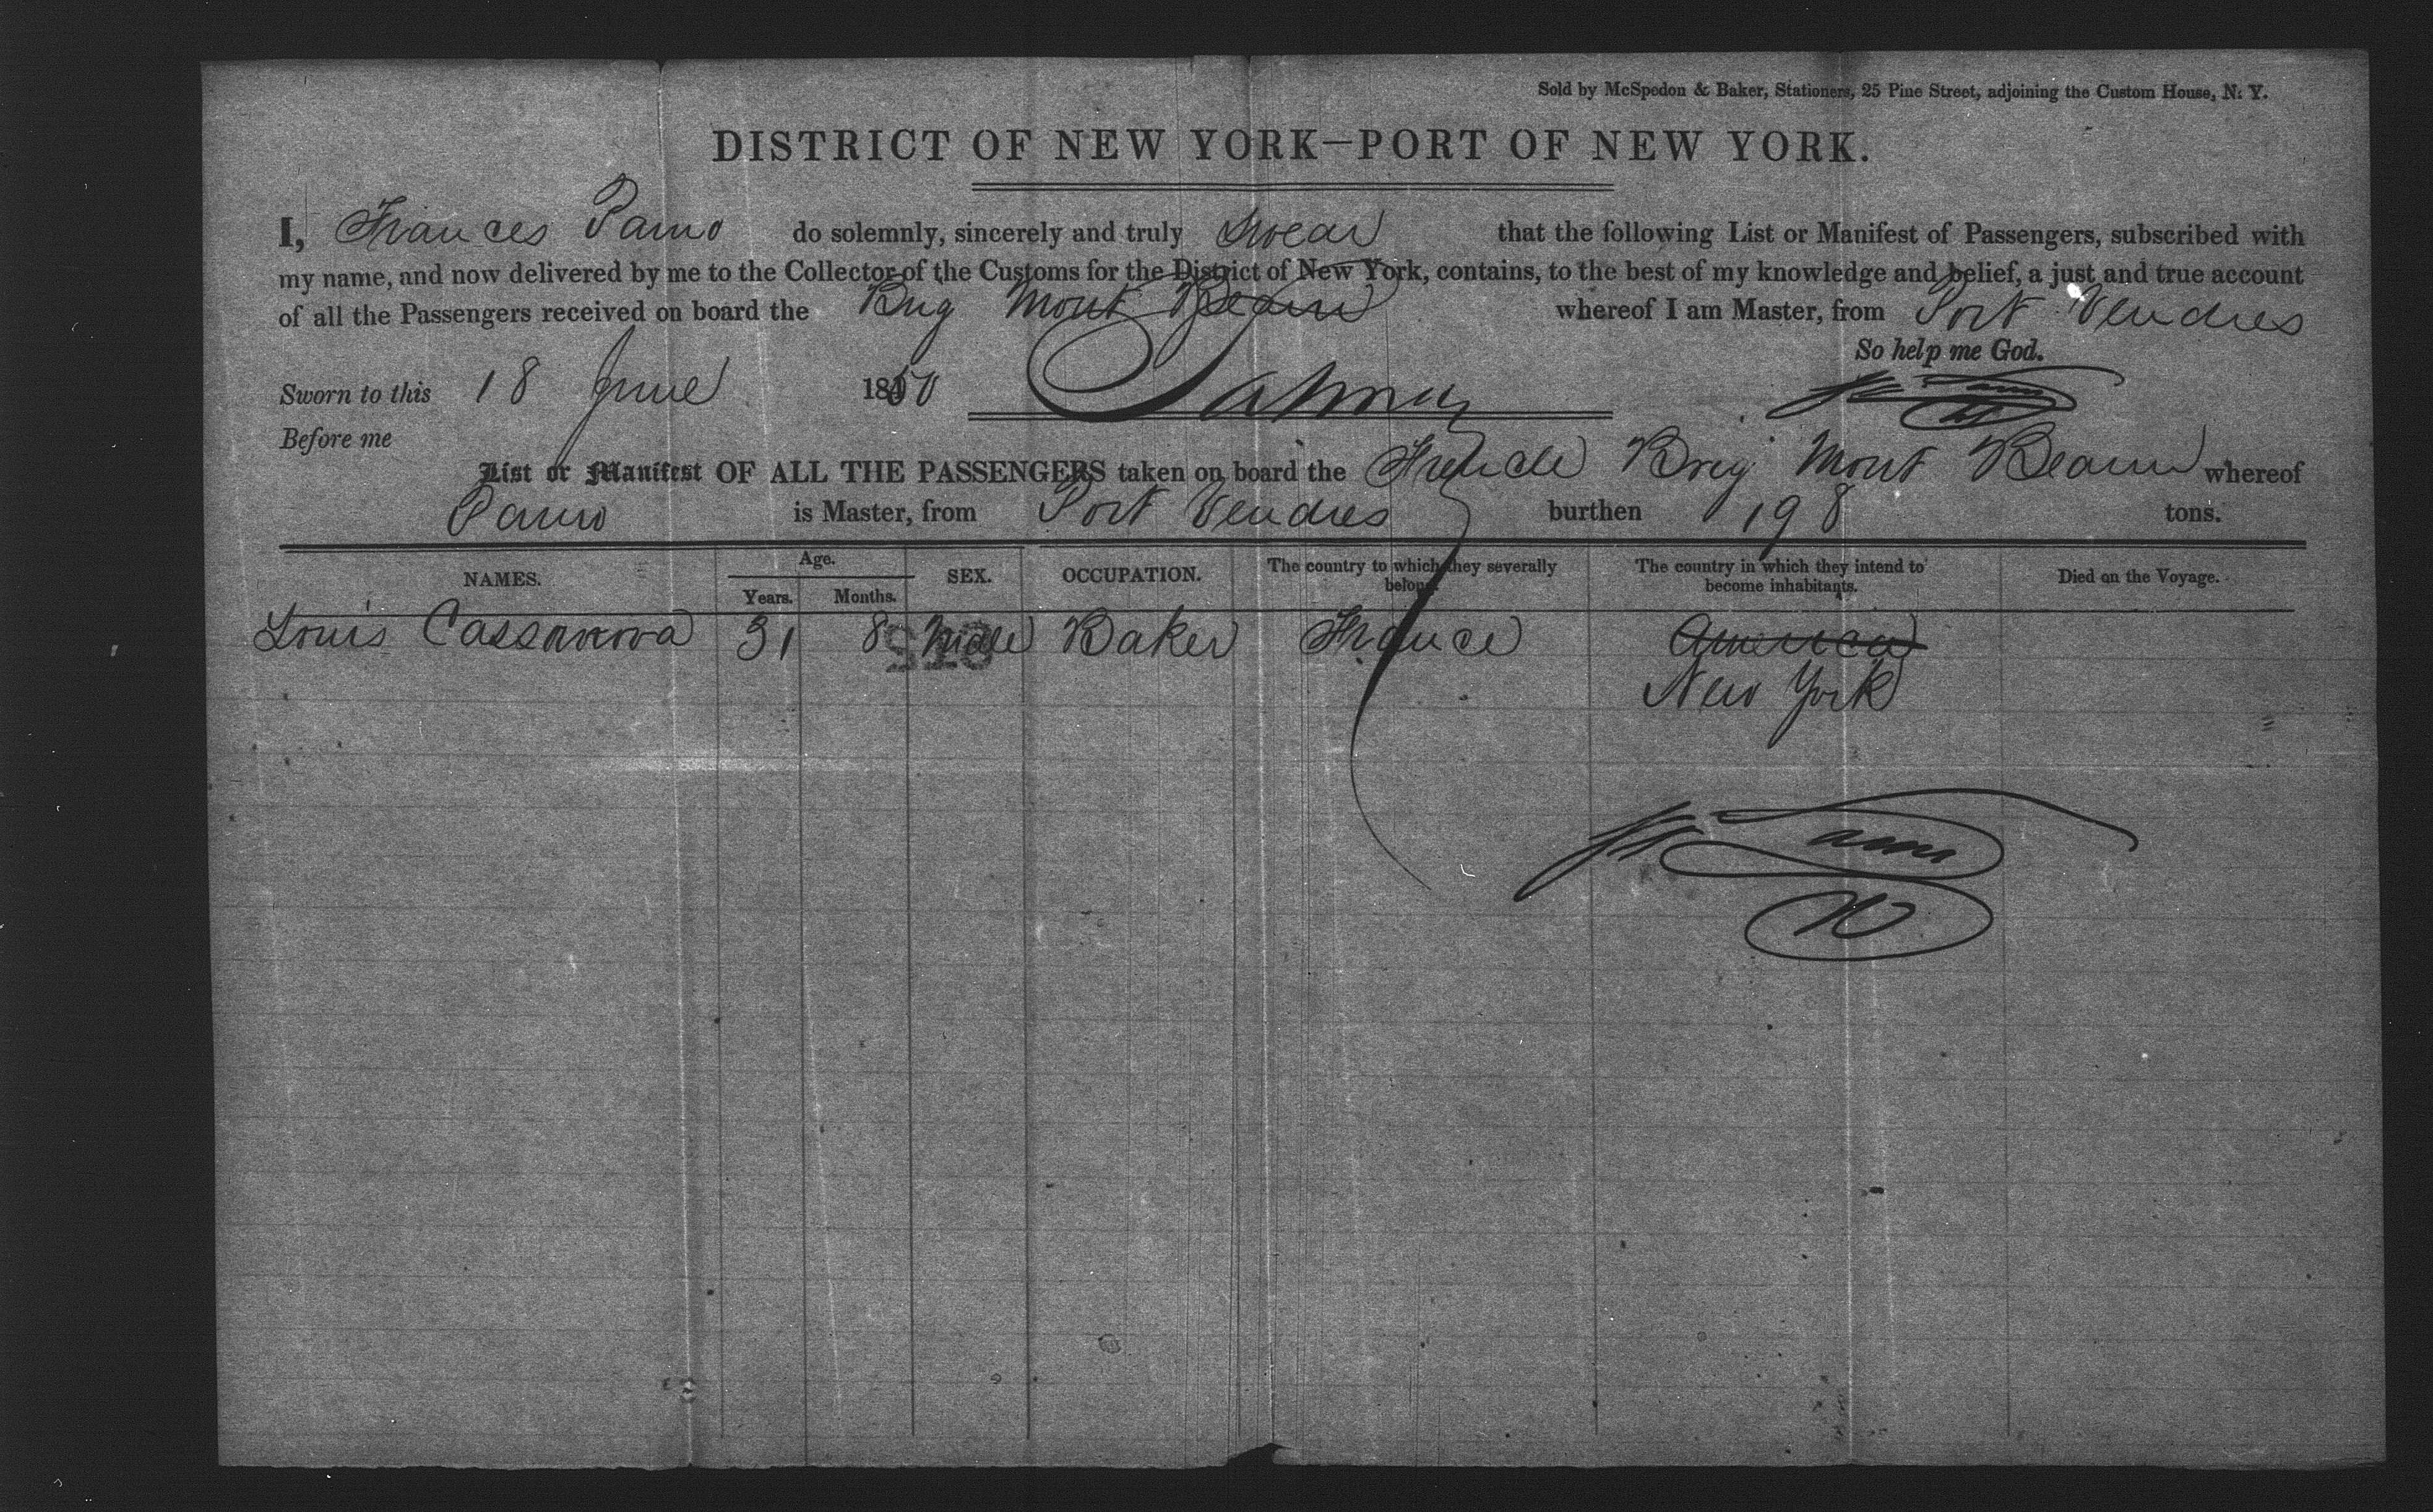 Sold by McSpedon & Baker, Stationers, 25 Pine Street, adjoining the Custom House, N. Y.
DISTRICT OF NEW YORK—PORT OF NEW YORK.
I, Frances Pamo do solemnly, sincerely and truly Swear that the following List or Manifest of Passengers, subscribed with
my name, and now delivered by me to the Collector of the Customs for the District of New York, contains, to the best of my knowledge and belief, a just and true account
of all the Passengers received on board the Brig Mont Bearn whereof I am Master, from Port Vendres
So help me God.
Sworn to this 18 June 1850
Before me
List or Manifest OF ALL THE PASSENGERS taken on board the French Brig Mont Bearn whereof
Pamo is Master, from Port Vendres burthen 198 tons.
NAMES. Age. Years. Months. SEX. OCCUPATION. The country to which they severally belong. The country in which they intend to become inhabitants. Died on the Voyage.
Louis Cassanova 31 8 Male Baker France America
New York